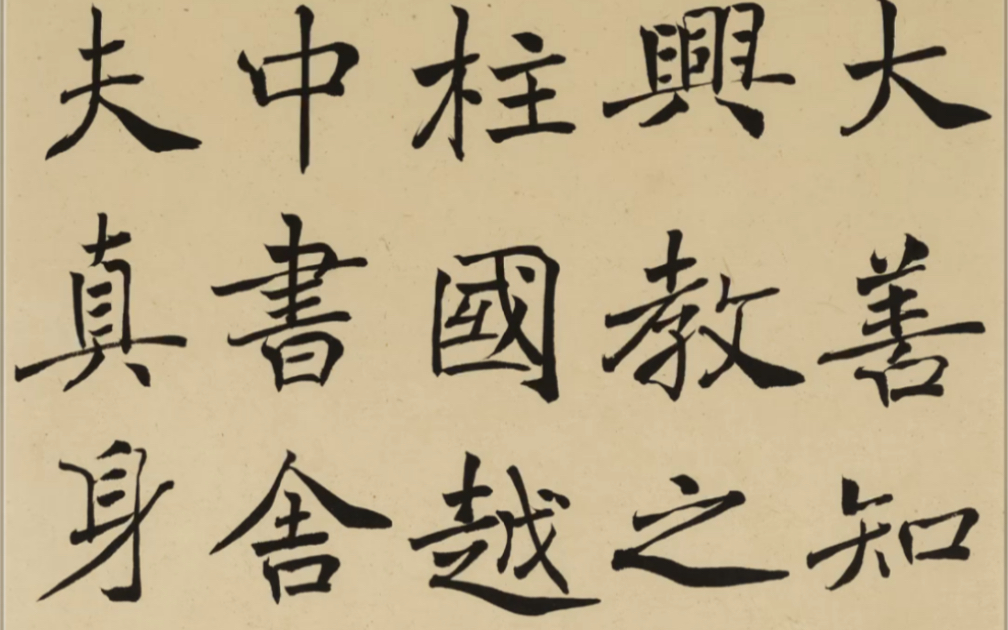 大善知
興教之
柱國越
中書舍
夫真身